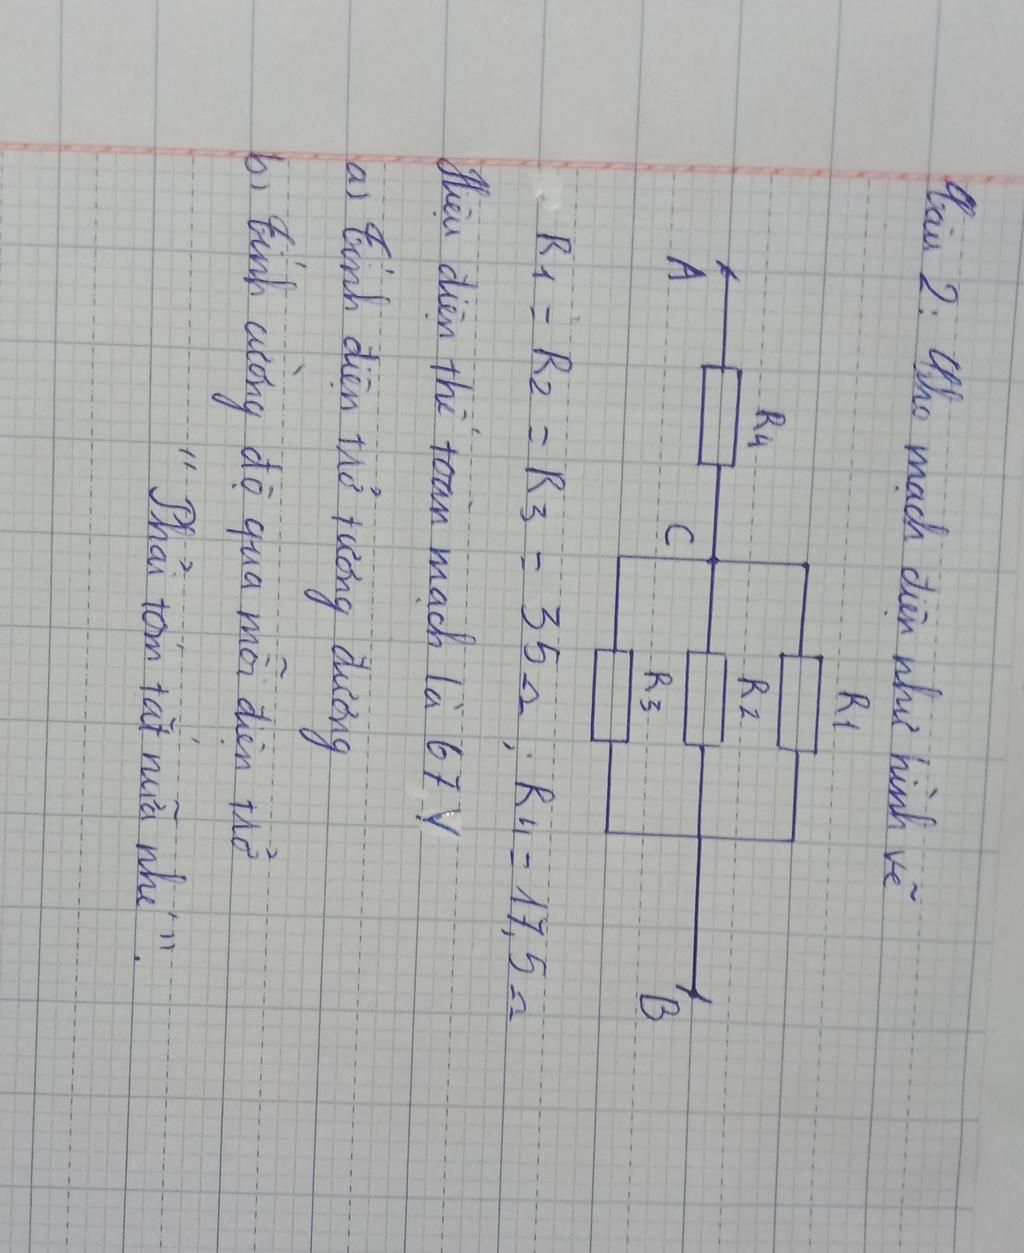 Câu 2: Cho mạch điện như hình vẽ
R1
R4
R2
C
R3
A
B
R1 = R2 = R3 = 35Ω ; R4 = 17,5Ω
Hiệu điện thế toàn mạch là 67V
a) Tính điện trở tương đương
b) Tính cường độ qua mỗi điện trở
"Phải tóm tắt nữa nhé".